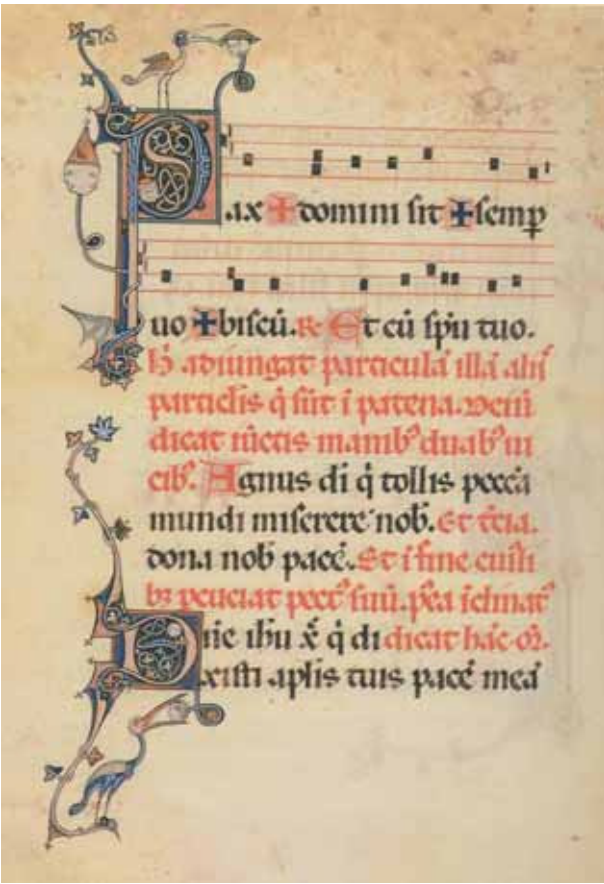 Pax ✠ domini sit ✠ semp
uo ✠ biscū. R. Et cū spū tuo.
h̄ adiungat particulā illā aliis
particulis q̄ sūt ī patena.
dicat iūctis manibꝰ duabꝰ ui
cibꝰ. Agnus di q̄ tollis pecca
mundi miserere nob̄. Et t̄cia.
dona nob̄ pacē. Et ī fine
pectꝰ suū. p̄ea īclinatꝰ
Dn̄e ihū xp̄e q̄ di dicat hāc or̄.
xisti ap̄lis tuis pacē meā